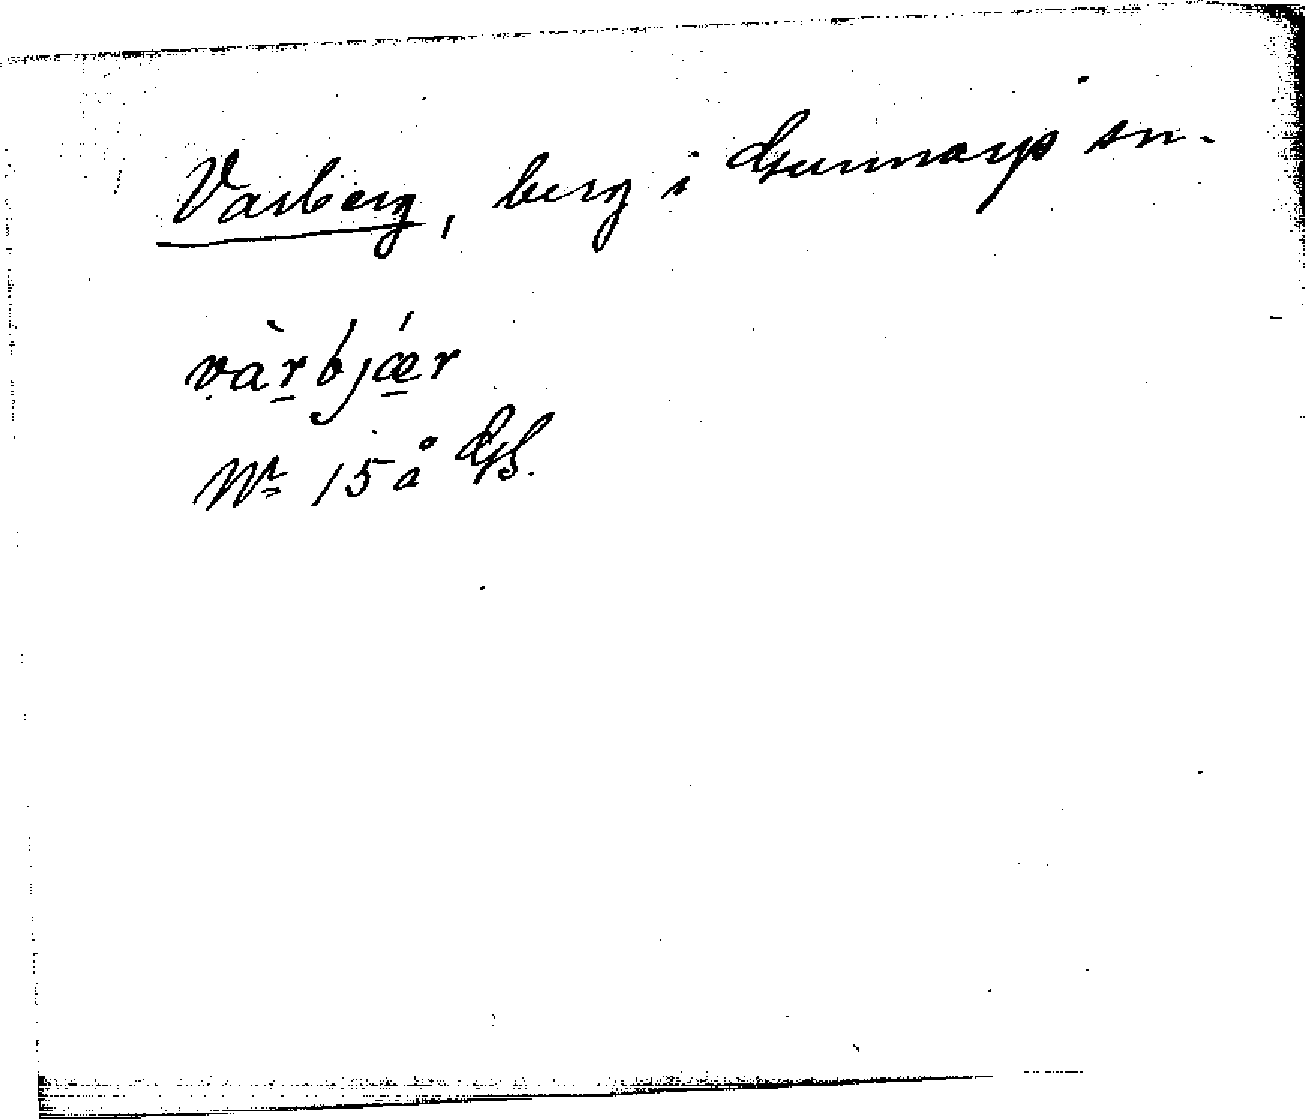 Varberg, berg i Gunnarps sn.
và̱rbjǽ̱r
Nr 15 å GS.